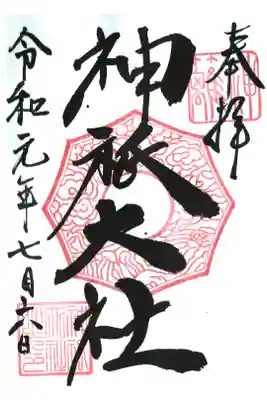 奉拝
神祇大社
令和元年七月六日